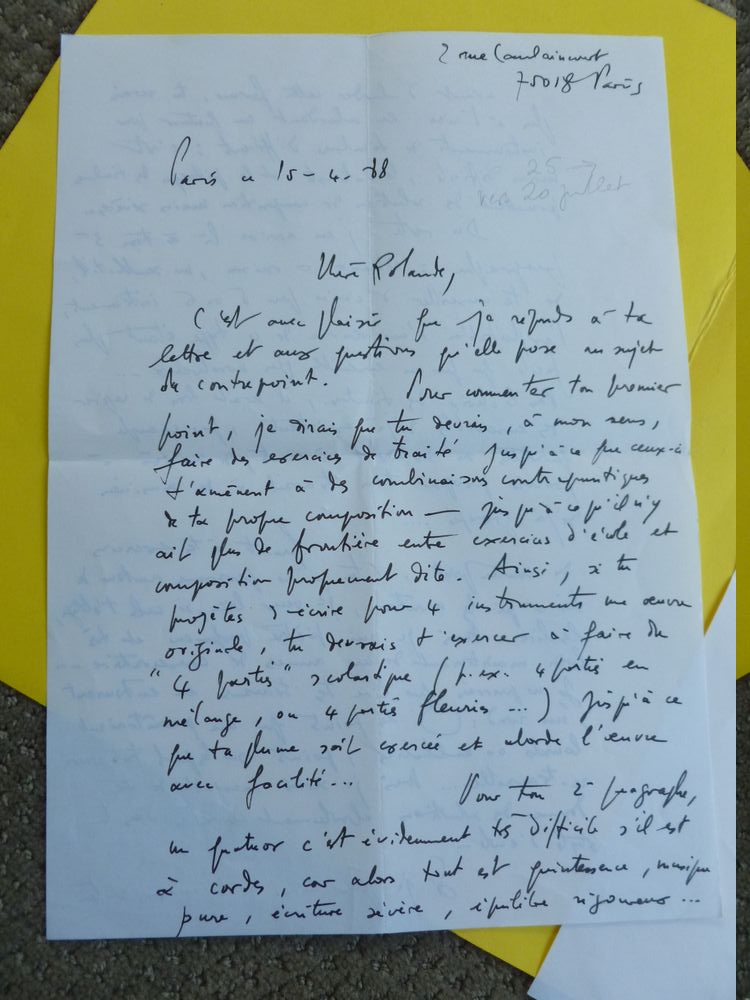 2 rue Caulaincourt
75018 Paris
Paris ce 15-4-88
25 →
vers 20 juillet
Chère Rolande,
C'est avec plaisir que je réponds à ta
lettre et aux questions qu'elle pose au sujet
du contrepoint. Pour commenter ton premier
point, je dirais que tu devrais, à mon sens,
faire des exercices de traité jusqu'à ce que ceux-ci
t'amènent à des combinaisons contrapuntiques
de ta propre composition — jusqu'à ce qu'il n'y
ait plus de frontière entre exercices d'école et
composition proprement dite. Ainsi, si tu
projètes d'écrire pour 4 instruments une œuvre
originale, tu devrais t'exercer à faire du
"4 parties" scolastique (p.ex. 4 parties en
mélange, ou 4 parties fleuries...) jusqu'à ce
que ta plume soit exercée et aborde l'œuvre
avec facilité... Pour ton 2e paragraphe,
un quatuor c'est évidemment très difficile s'il est
à cordes, car alors tout est quintessence, musique
pure, écriture sévère, équilibre rigoureux...